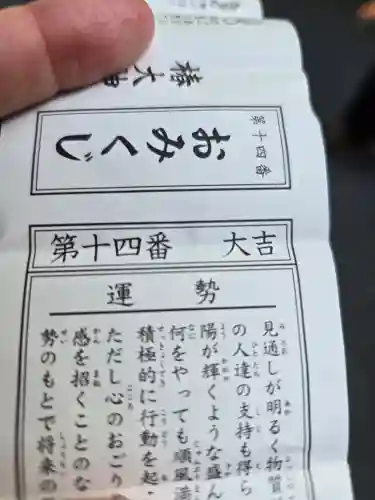 第十四番
おみくじ
第十四番 大吉
運勢
見通しが明るく物質
の人達の支持も得ら
陽が輝くような盛ん
何をやっても順風満
積極的に行動を起
ただし心のおごり
感を招くことのな
勢のもとで将来の